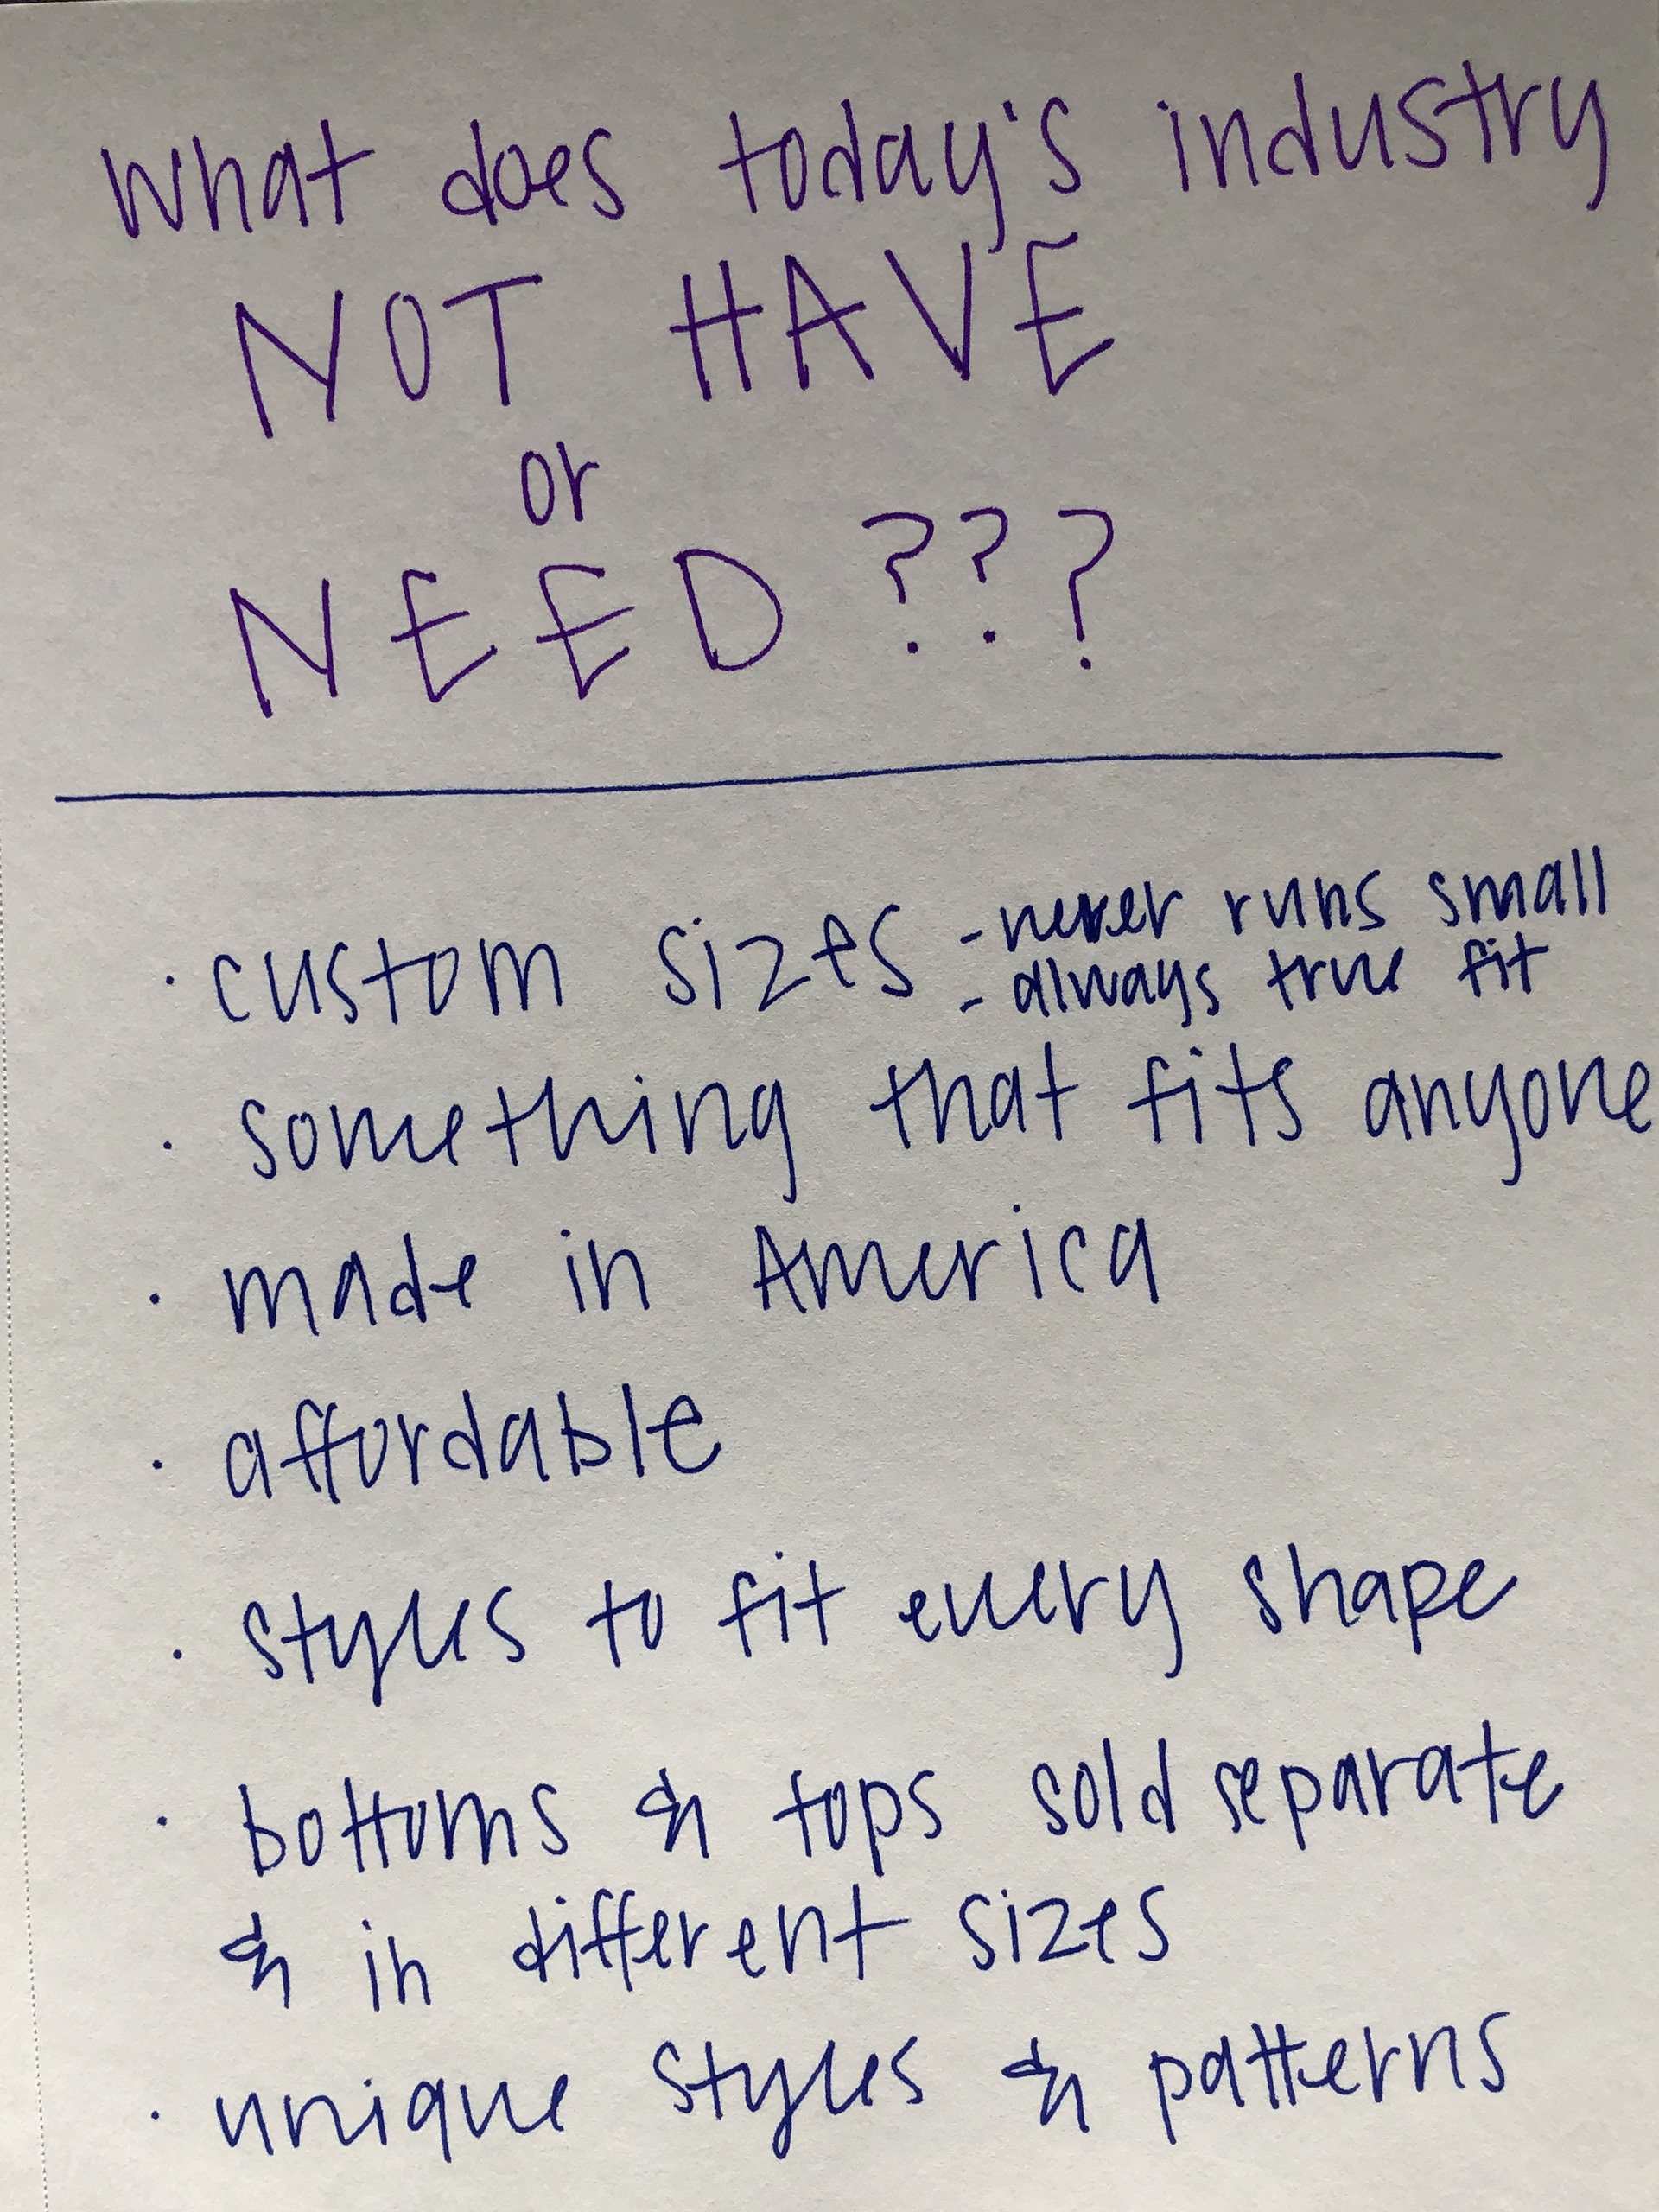 What does today's industry
NOT HAVE
or
NEED ???
· custom sizes - never runs small
- always true fit
· something that fits anyone
· made in America
· affordable
· styles to fit every shape
· bottoms & tops sold separate
& in different sizes
· unique styles & patterns